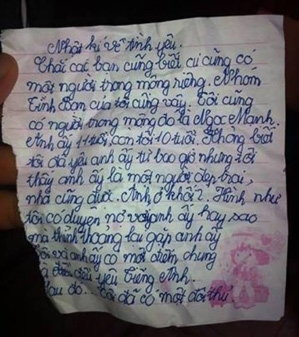 Nhật kí về tình yêu.
Chắc các bạn cũng biết cứ cũng có
một người trong mộng riêng. Nhóm
Tình Bạn của tôi cũng vậy. Tôi cũng
có người trong mộng đó là Ngọc Mạnh.
Anh ấy 11 tuổi, còn tôi 10 tuổi. Không biết
tôi đã yêu anh ấy từ bao giờ nhưng tôi
thấy anh ấy là một người đẹp trai,
nhà cũng được. Anh ở khối. Hình như
tôi có duyên nợ với anh ấy hay sao
mà thỉnh thoảng lại gặp anh ấy
Tôi và anh ấy có một điểm chung
là đều yêu Tiếng Anh.
Sau đó... Tôi đã có một đối thủ